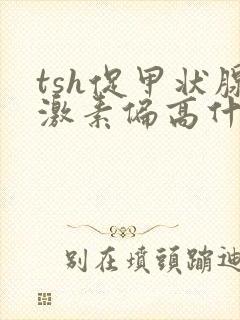 tsh促甲状腺
激素偏高什
别在墳頭蹦迪